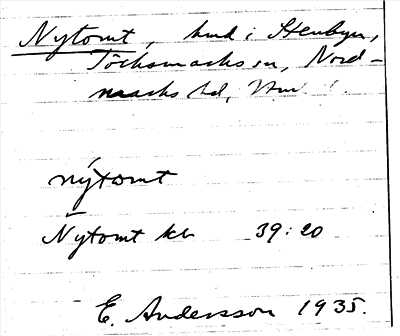 Nytomt, hmd i Stenbyn,
Töcksmarks sn, Nord-
marks hd, Vrml.
nýtomt
Nytomt kb 39:20
E. Andersson 1935.